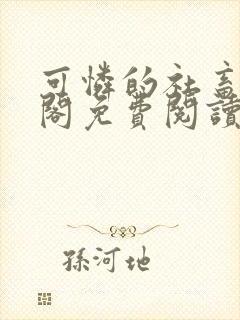 可憐的社畜
閣免費閱讀
孫河地